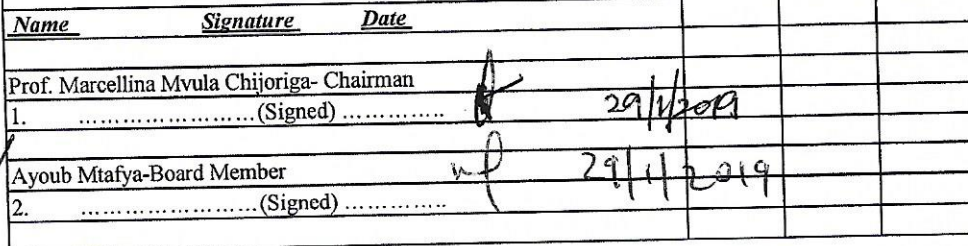 Name Signature Date
Prof. Marcellina Mvula Chijoriga- Chairman
1. ……………………(Signed) ………….. 29/1/2019
Ayoub Mtafya-Board Member 29/1/2019
2. ……………………(Signed) …………..